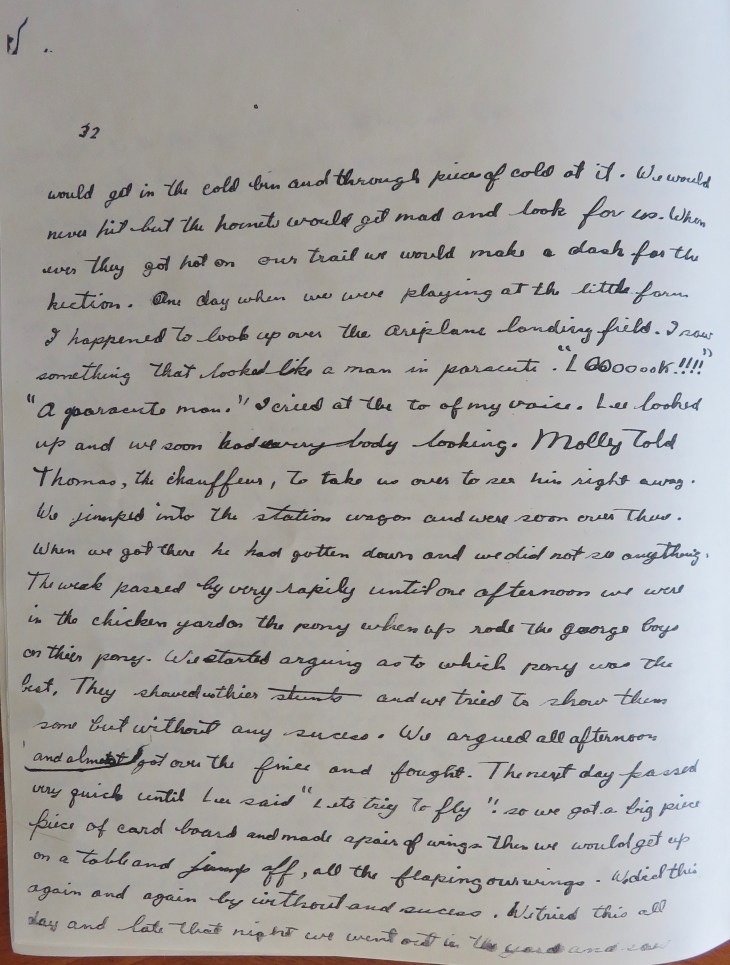 32
would get in the cold bin and through pieces of cold at it. We would
never hit but the hornets would get mad and look for us. When
ever they got hot on our trail we would make a dash for the
kiction. One day when we were playing at the little farm
I happened to look up over the areiplane landing field. I saw
something that looked like a man in parascute. "LOOooooK!!!!"
"A parascute man." I cried at the to of my voice. Lee looked
up and we soon had every body looking. Molly told
Thomas, the chauffeur, to take us over to see him right away.
We jumped into the station wagon and were soon over thee.
When we got there he had gotten down and we did not se anything.
The week passed by very rapily until one afternoon we were
in the chicken yard on the pony when up rode the george boys
on thier pony. We started arguing as to which pony was the
best. They showed us thier stunts and we tried to show them
some but without any sucess. We argued all afternoon
and almost got over the fince and fought. The next day passed
very quick until Lee said "Lets try to fly". so we got a big piece
piece of card board and made a pair of wings then we would get up
on a table and jump off, all the flaping our wings. We did this
again and again by without and sucess. We tried this all
day and late that night we went out in the yard and saw